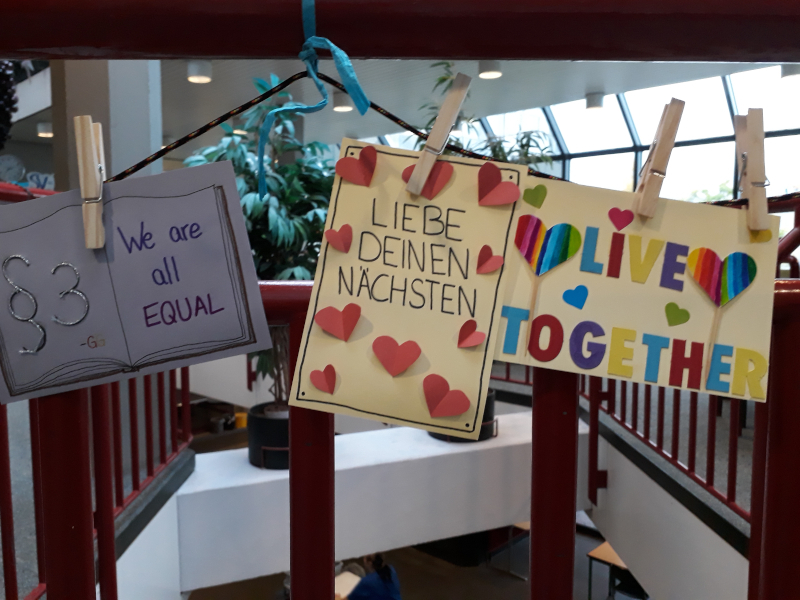 §3
-GG
We are
all
EQUAL
LIEBE
DEINEN
NÄCHSTEN
LIVE
TOGETHER